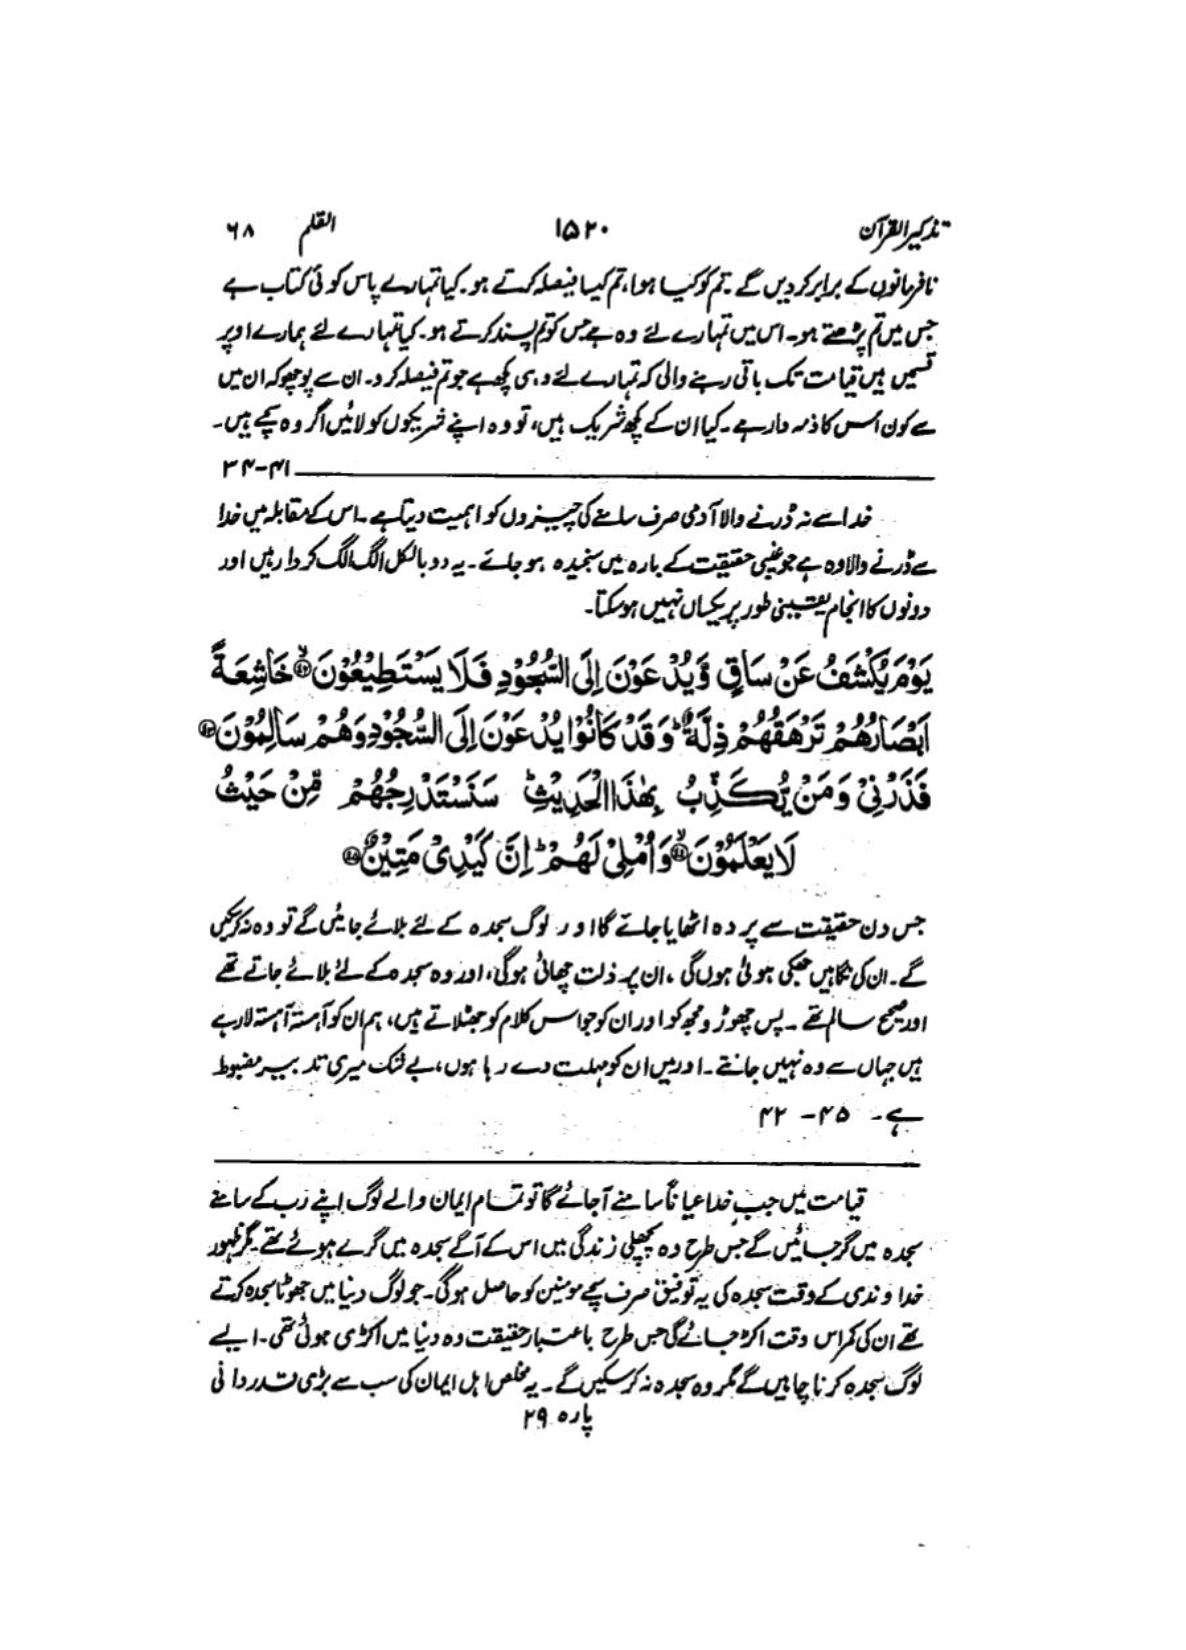 تذکیر القرآن ۱۵۲۰ القلم ۶۸
نافرمانوں کے برابر کر دیں گے۔ تم کو کیا ہوا، تم کیسا فیصلہ کرتے ہو۔ کیا تمہارے پاس کوئی کتاب ہے
جس میں تم پڑھتے ہو۔ اس میں تمہارے لئے وہ ہے جس کو تم پسند کرتے ہو۔ کیا تمہارے لئے ہمارے اوپر
قسمیں ہیں قیامت تک باقی رہنے والی کہ تمہارے لئے وہی کچھ ہے جو تم فیصلہ کرو۔ ان سے پوچھو کہ ان میں
سے کون اس کا ذمہ دار ہے۔ کیا ان کے کچھ شریک ہیں، تو وہ اپنے شریکوں کو لائیں اگر وہ سچے ہیں۔
۴۱-۳۴
خدا سے نہ ڈرنے والا آدمی صرف سامنے کی چیزوں کو اہمیت دیتا ہے۔ اس کے مقابلہ میں خدا
سے ڈرنے والا وہ ہے جو غیبی حقیقت کے بارہ میں سنجیدہ ہو جائے۔ یہ دو بالکل الگ الگ کردار ہیں اور
دونوں کا انجام یقینی طور پر یکساں نہیں ہو سکتا۔
يَوْمَ يُكْشَفُ عَنْ سَاقٍ وَّيُدْعَوْنَ اِلَى السُّجُوْدِ فَلَا يَسْتَطِيْعُوْنَ ﴿۴۲﴾ خَاشِعَةً
اَبْصَارُهُمْ تَرْهَقُهُمْ ذِلَّةٌ ؕ وَقَدْ كَانُوْا يُدْعَوْنَ اِلَى السُّجُوْدِ وَهُمْ سَالِمُوْنَ ﴿۴۳﴾
فَذَرْنِيْ وَمَنْ يُّكَذِّبُ بِهٰذَا الْحَدِيْثِ ؕ سَنَسْتَدْرِجُهُمْ مِّنْ حَيْثُ
لَا يَعْلَمُوْنَ ﴿۴۴﴾ وَاُمْلِيْ لَهُمْ ؕ اِنَّ كَيْدِيْ مَتِيْنٌ ﴿۴۵﴾
جس دن حقیقت سے پردہ اٹھایا جائے گا اور لوگ سجدہ کے لئے بلائے جائیں گے تو وہ نہ کر سکیں
گے۔ ان کی نگاہیں جھکی ہوئی ہوں گی، ان پر ذلت چھائی ہوگی، اور وہ سجدہ کے لئے بلائے جاتے تھے
اور صحیح سالم تھے۔ پس چھوڑو مجھ کو اور ان کو جو اس کلام کو جھٹلاتے ہیں، ہم ان کو آہستہ آہستہ لا رہے
ہیں جہاں سے وہ نہیں جانتے۔ اور میں ان کو مہلت دے رہا ہوں، بے شک میری تدبیر مضبوط
ہے۔ ۴۵-۴۲
قیامت میں جب خدا عیاناً سامنے آجائے گا تو تمام ایمان والے لوگ اپنے رب کے سامنے
سجدہ میں گر جائیں گے جس طرح وہ پچھلی زندگی میں اس کے آگے سجدہ میں گرے ہوئے تھے۔ مگر ظہور
خداوندی کے وقت سجدہ کی یہ توفیق صرف سچے مومنین کو حاصل ہوگی۔ جو لوگ دنیا میں جھوٹا سجدہ کرتے
تھے ان کی کمر اس وقت اکڑ جائے گی جس طرح باعتبار حقیقت وہ دنیا میں اکڑی ہوئی تھی۔ ایسے
لوگ سجدہ کرنا چاہیں گے مگر وہ سجدہ نہ کر سکیں گے۔ یہ مخلص اہل ایمان کی سب سے بڑی قدردانی
پارہ ۲۹